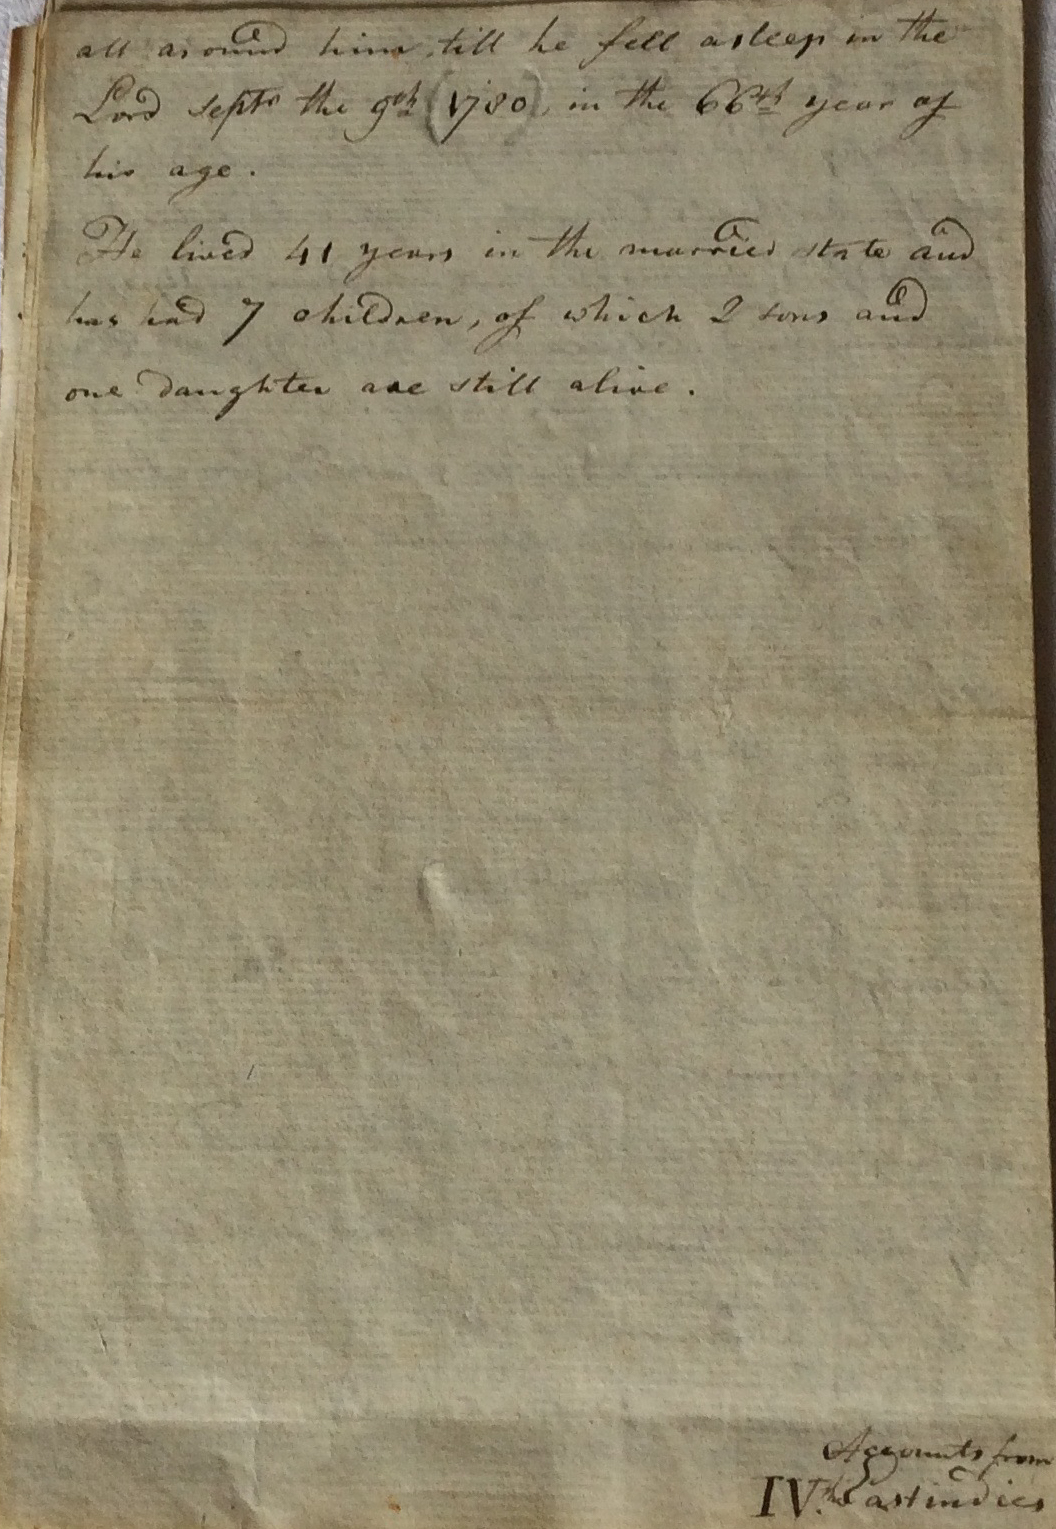 all around him, till he fell asleep in the
Lord septr the 9th (1780) in the 66th year of
his age.
He lived 41 years in the married state and
has had 7 children, of which 2 sons and
one daughter are still alive.
Accounts from
IV. the Eastindies